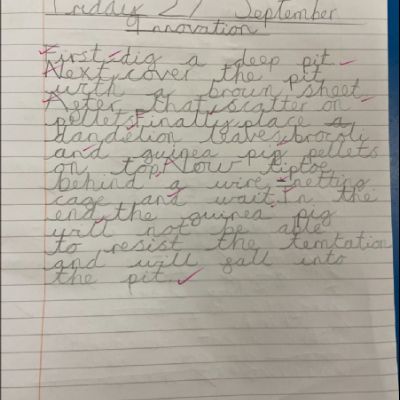 Friday 27 September
Innovation
First, dig a deep pit.
Next, cover the pit
with a brown sheet.
After that, scatter on
pellets. Finally, place a
dandelion leaves, brocoli
and guinea pig pellets
on top. Now tiptoe
behind a wire-netting
cage and wait. In the
end, the guinea pig
will not be able
to resist the temtation
and will fall into
the pit.